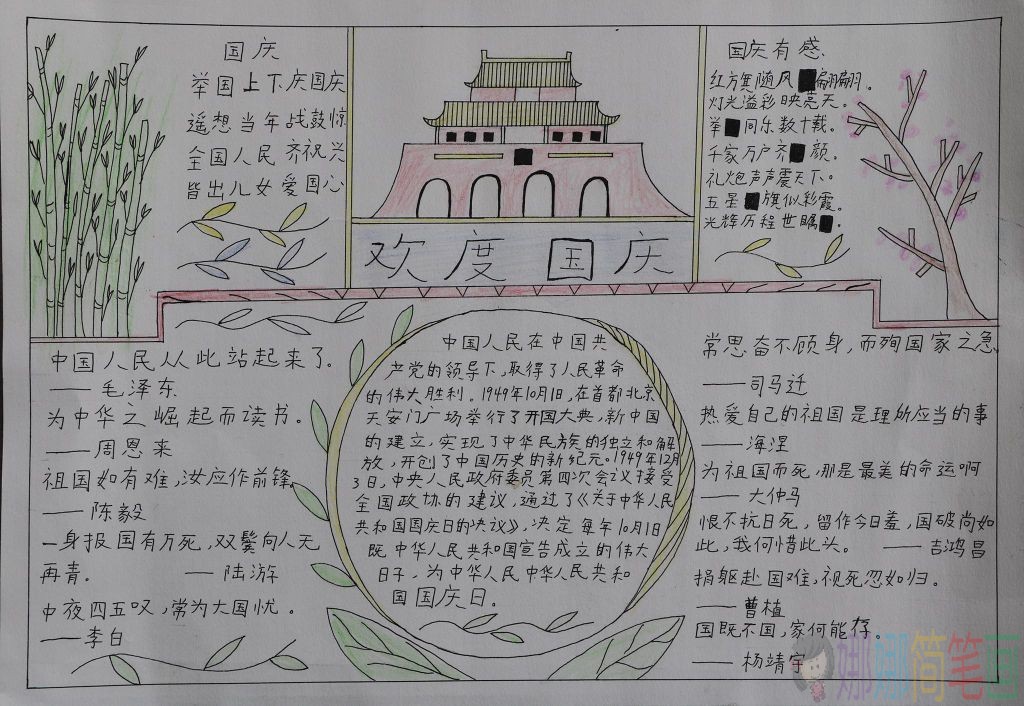 国庆
举国上下庆国庆
遥想当年战鼓惊
全国人民齐祝兴
皆出儿女爱国心
欢度国庆
国庆有感
红方集随风翩翩。
灯光溢彩映亮天。
举同乐数十载。
千家万户齐颜。
礼炮声声震天下。
五星旗似彩霞。
光辉历程世瞩。
中国人民从此站起来了。
——毛泽东
为中华之崛起而读书。
——周恩来
祖国如有难,汝应作前锋。
——陈毅
一身报国有万死,双鬓向人无
再青。 ——陆游
中夜四五叹,常为大国忧。
——李白
中国人民在中国共
产党的领导下,取得了人民革命
的伟大胜利。1949年10月1日,在首都北京
天安门广场举行了开国大典,新中国
的建立,实现了中华民族的独立和解
放,开创了中国历史的新纪元。1949年12月
3日,中央人民政府委员第四次会议接受
全国政协的建议,通过了《关于中华人民
共和国国庆日的决议》,决定每年10月1日
既中华人民共和国宣告成立的伟大
日子,为中华人民中华人民共和
国国庆日。
常思奋不顾身,而殉国家之急
——司马迁
热爱自己的祖国是理所应当的事
——海涅
为祖国而死,那是最美的命运啊
——大仲马
恨不抗日死,留作今日羞,国破尚如
此,我何惜此头。 ——吉鸿昌
捐躯赴国难,视死忽如归。
——曹植
国既不国,家何能存。
——杨靖宇
娜娜简笔画